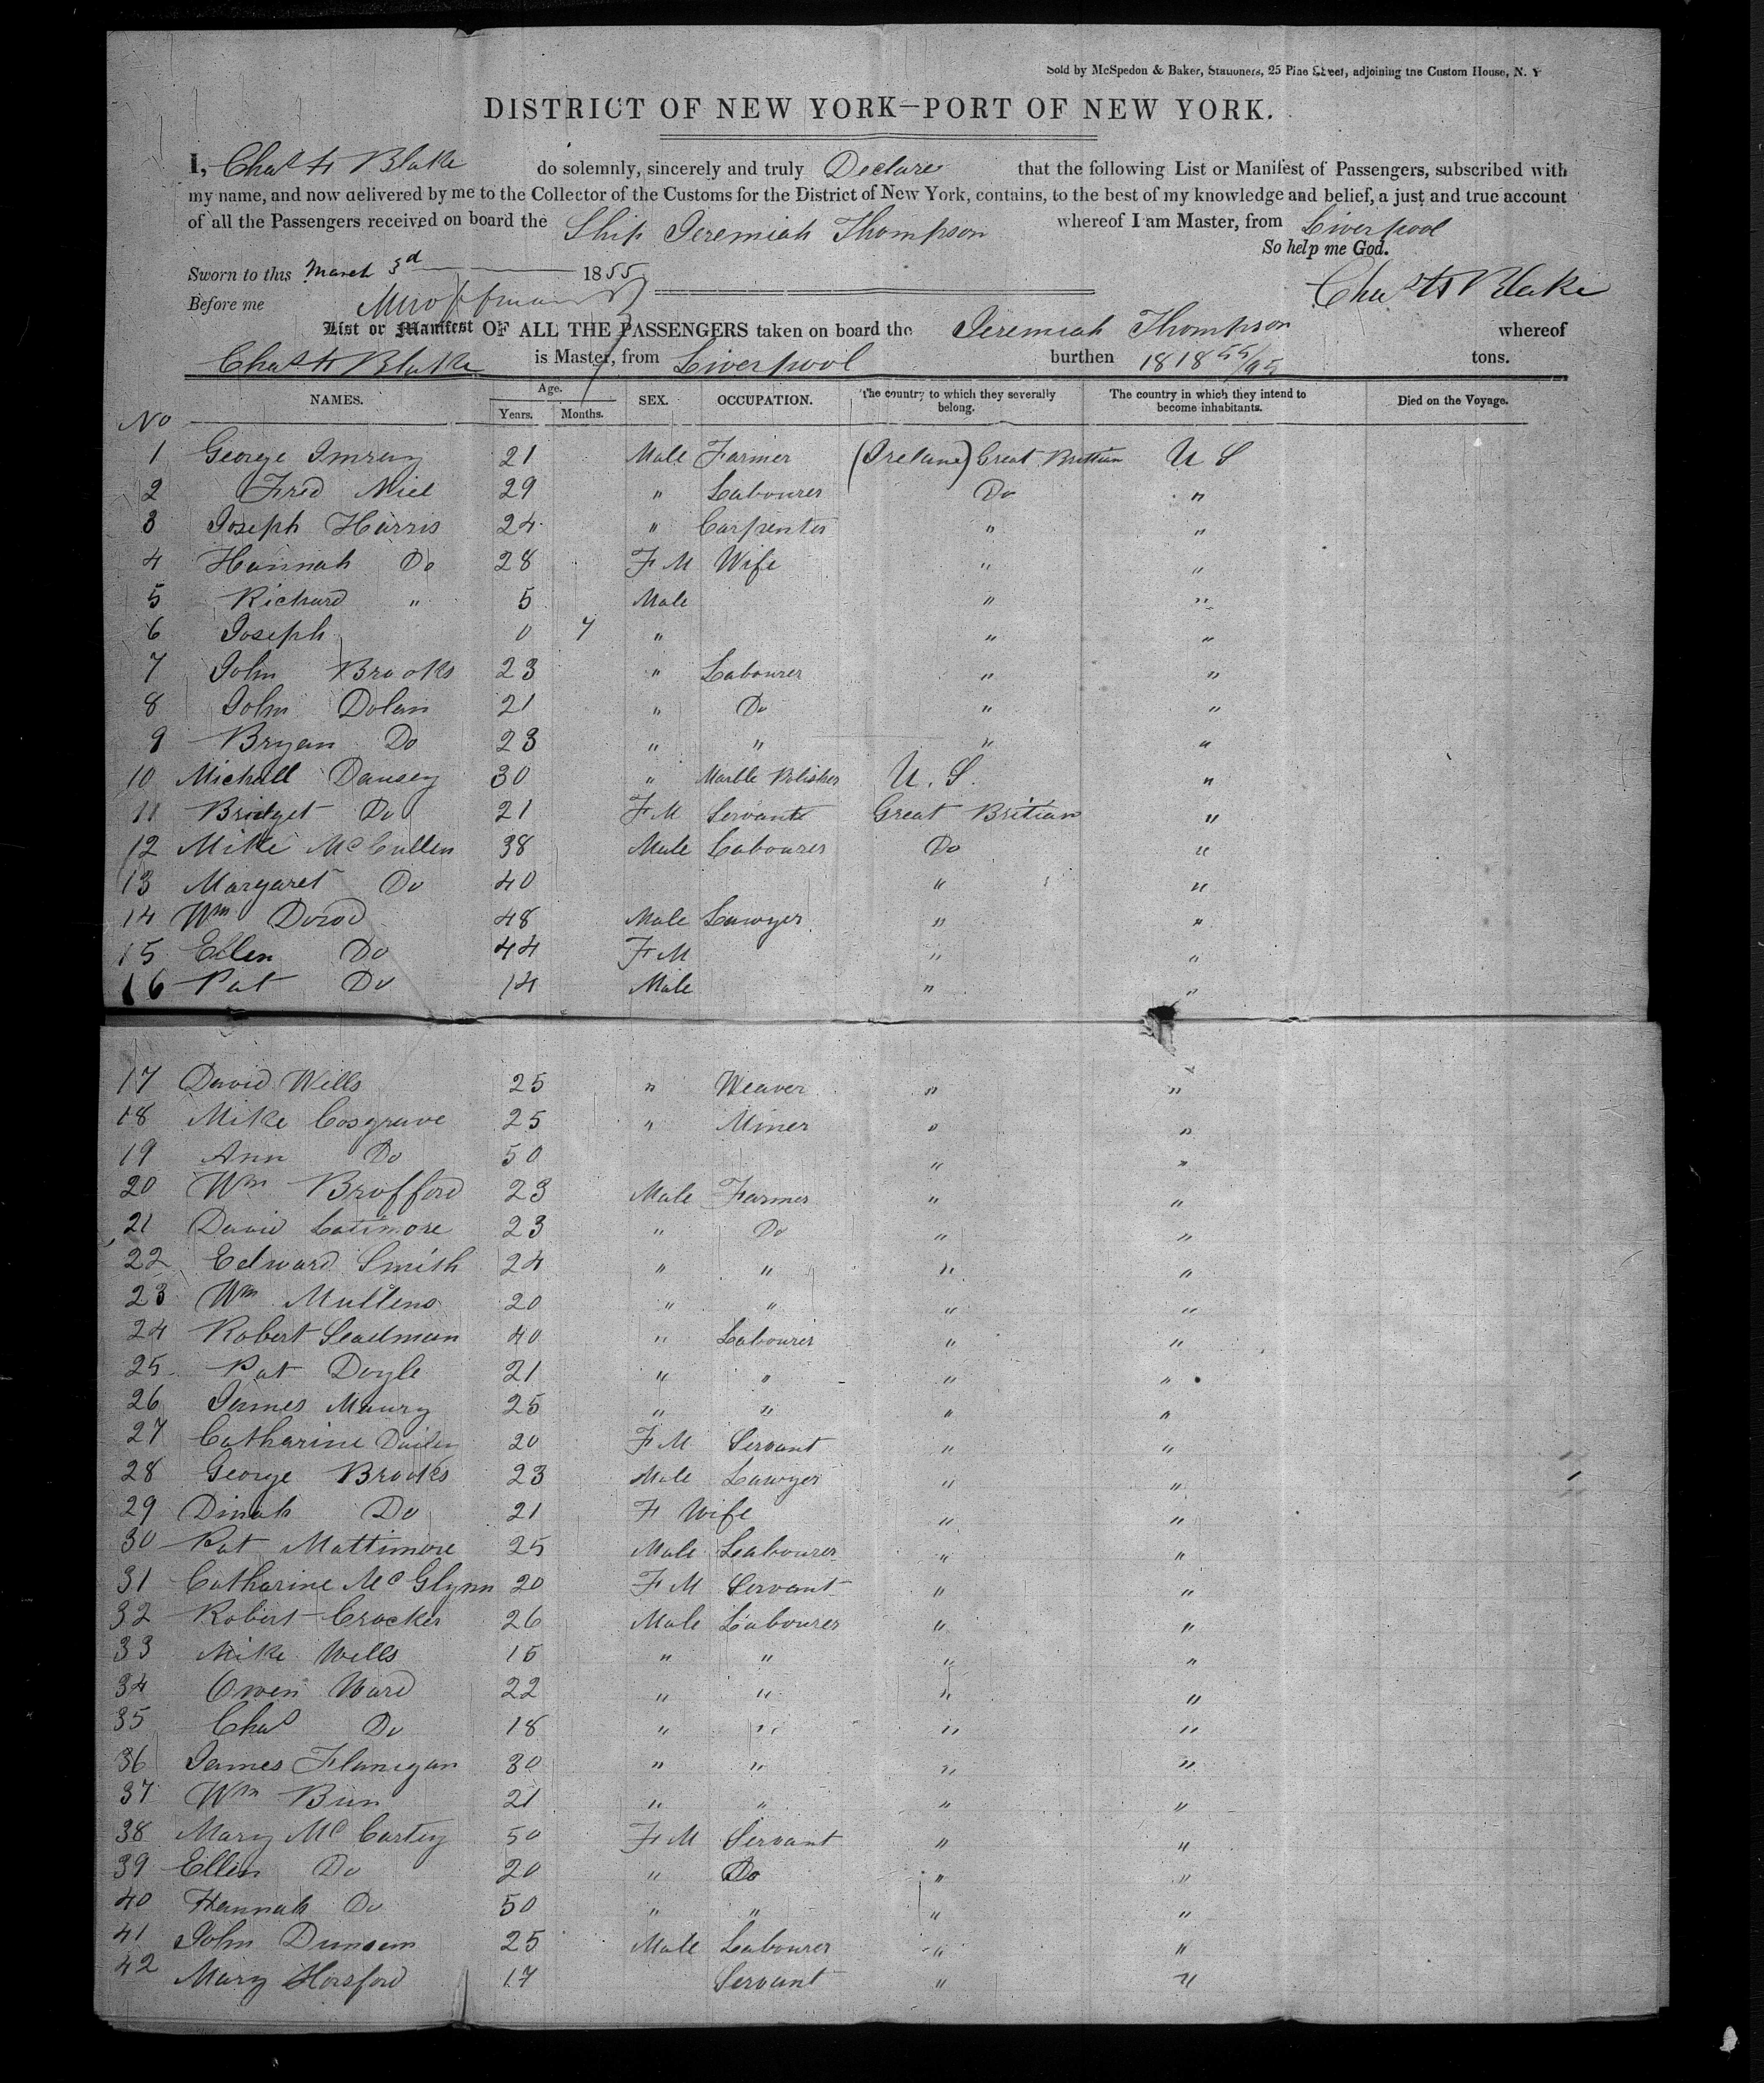 Sold by McSpedon & Baker, Stationers, 25 Pine Street, adjoining the Custom House, N. Y
DISTRICT OF NEW YORK—PORT OF NEW YORK.
I, Chas H Blake do solemnly, sincerely and truly Declare that the following List or Manifest of Passengers, subscribed with
my name, and now delivered by me to the Collector of the Customs for the District of New York, contains, to the best of my knowledge and belief, a just and true account
of all the Passengers received on board the Ship Jeremiah Thompson whereof I am Master, from Liverpool
So help me God.
Sworn to this March 3d 1855
Chas H Blake
Before me
List or Manifest OF ALL THE PASSENGERS taken on board the Jeremiah Thompson whereof
Chas H Blake is Master, from Liverpool burthen 1818 55/95 tons.
No NAMES. Age. Years. Months. SEX. OCCUPATION. The country to which they severally belong. The country in which they intend to become inhabitants. Died on the Voyage.
1 George Imray 21 Male Farmer (Ireland) Great Brittian U S
2 Fred Niel 29 " Labourer Do "
3 Joseph Harris 24 " Carpenter " "
4 Hannah Do 28 F M Wife " "
5 Richard " 5 Male " "
6 Joseph 0 7 " " "
7 John Brooks 23 " Labourer " "
8 John Dolan 21 " Do " "
9 Bryan Do 23 " " " "
10 Michall Dansey 30 " Marble Polisher U. S. "
11 Bridget Do 21 F M Servante Great Britian "
12 Mike McCullen 38 Male Labourer Do "
13 Margaret Do 40 " "
14 Wm 48 Male Lawyer " "
15 Ellen Do 44 F M " "
16 Pat Do 14 Male " "
17 David Wells 25 " Weaver " "
18 Mike Cosgrave 25 " Miner " "
19 Ann Do 50 " "
20 Wm Brofford 23 Male Farmer " "
21 David Latimore 23 " Do " "
22 Edward Smith 24 " " " "
23 Wm Mullens 20 " " " "
24 Robert Steadman 40 " Labourer " "
25 Pat Doyle 21 " " " "
26 James Maury 25 " " " "
27 Catharine Dailey 20 F M Servant " "
28 George Brooks 23 Male Lawyer " "
29 Dinah Do 21 F Wife " "
30 Pat Mattimore 25 Male Labourer " "
31 Catharine McGlynn 20 F M Servant " "
32 Robert Crocker 26 Male Labourer " "
33 Mike Wells 16 " " " "
34 Owen Ward 22 " " " "
35 Chas Do 18 " " " "
36 James Flanigan 30 " " " "
37 Wm 21 " " " "
38 Mary McCartey 50 F M Servant " "
39 Ellen Do 20 " Do " "
40 Hannah Do 50 " " " "
41 John Duncan 25 Male Labourer " "
42 Mary Horsford 17 Servant " "